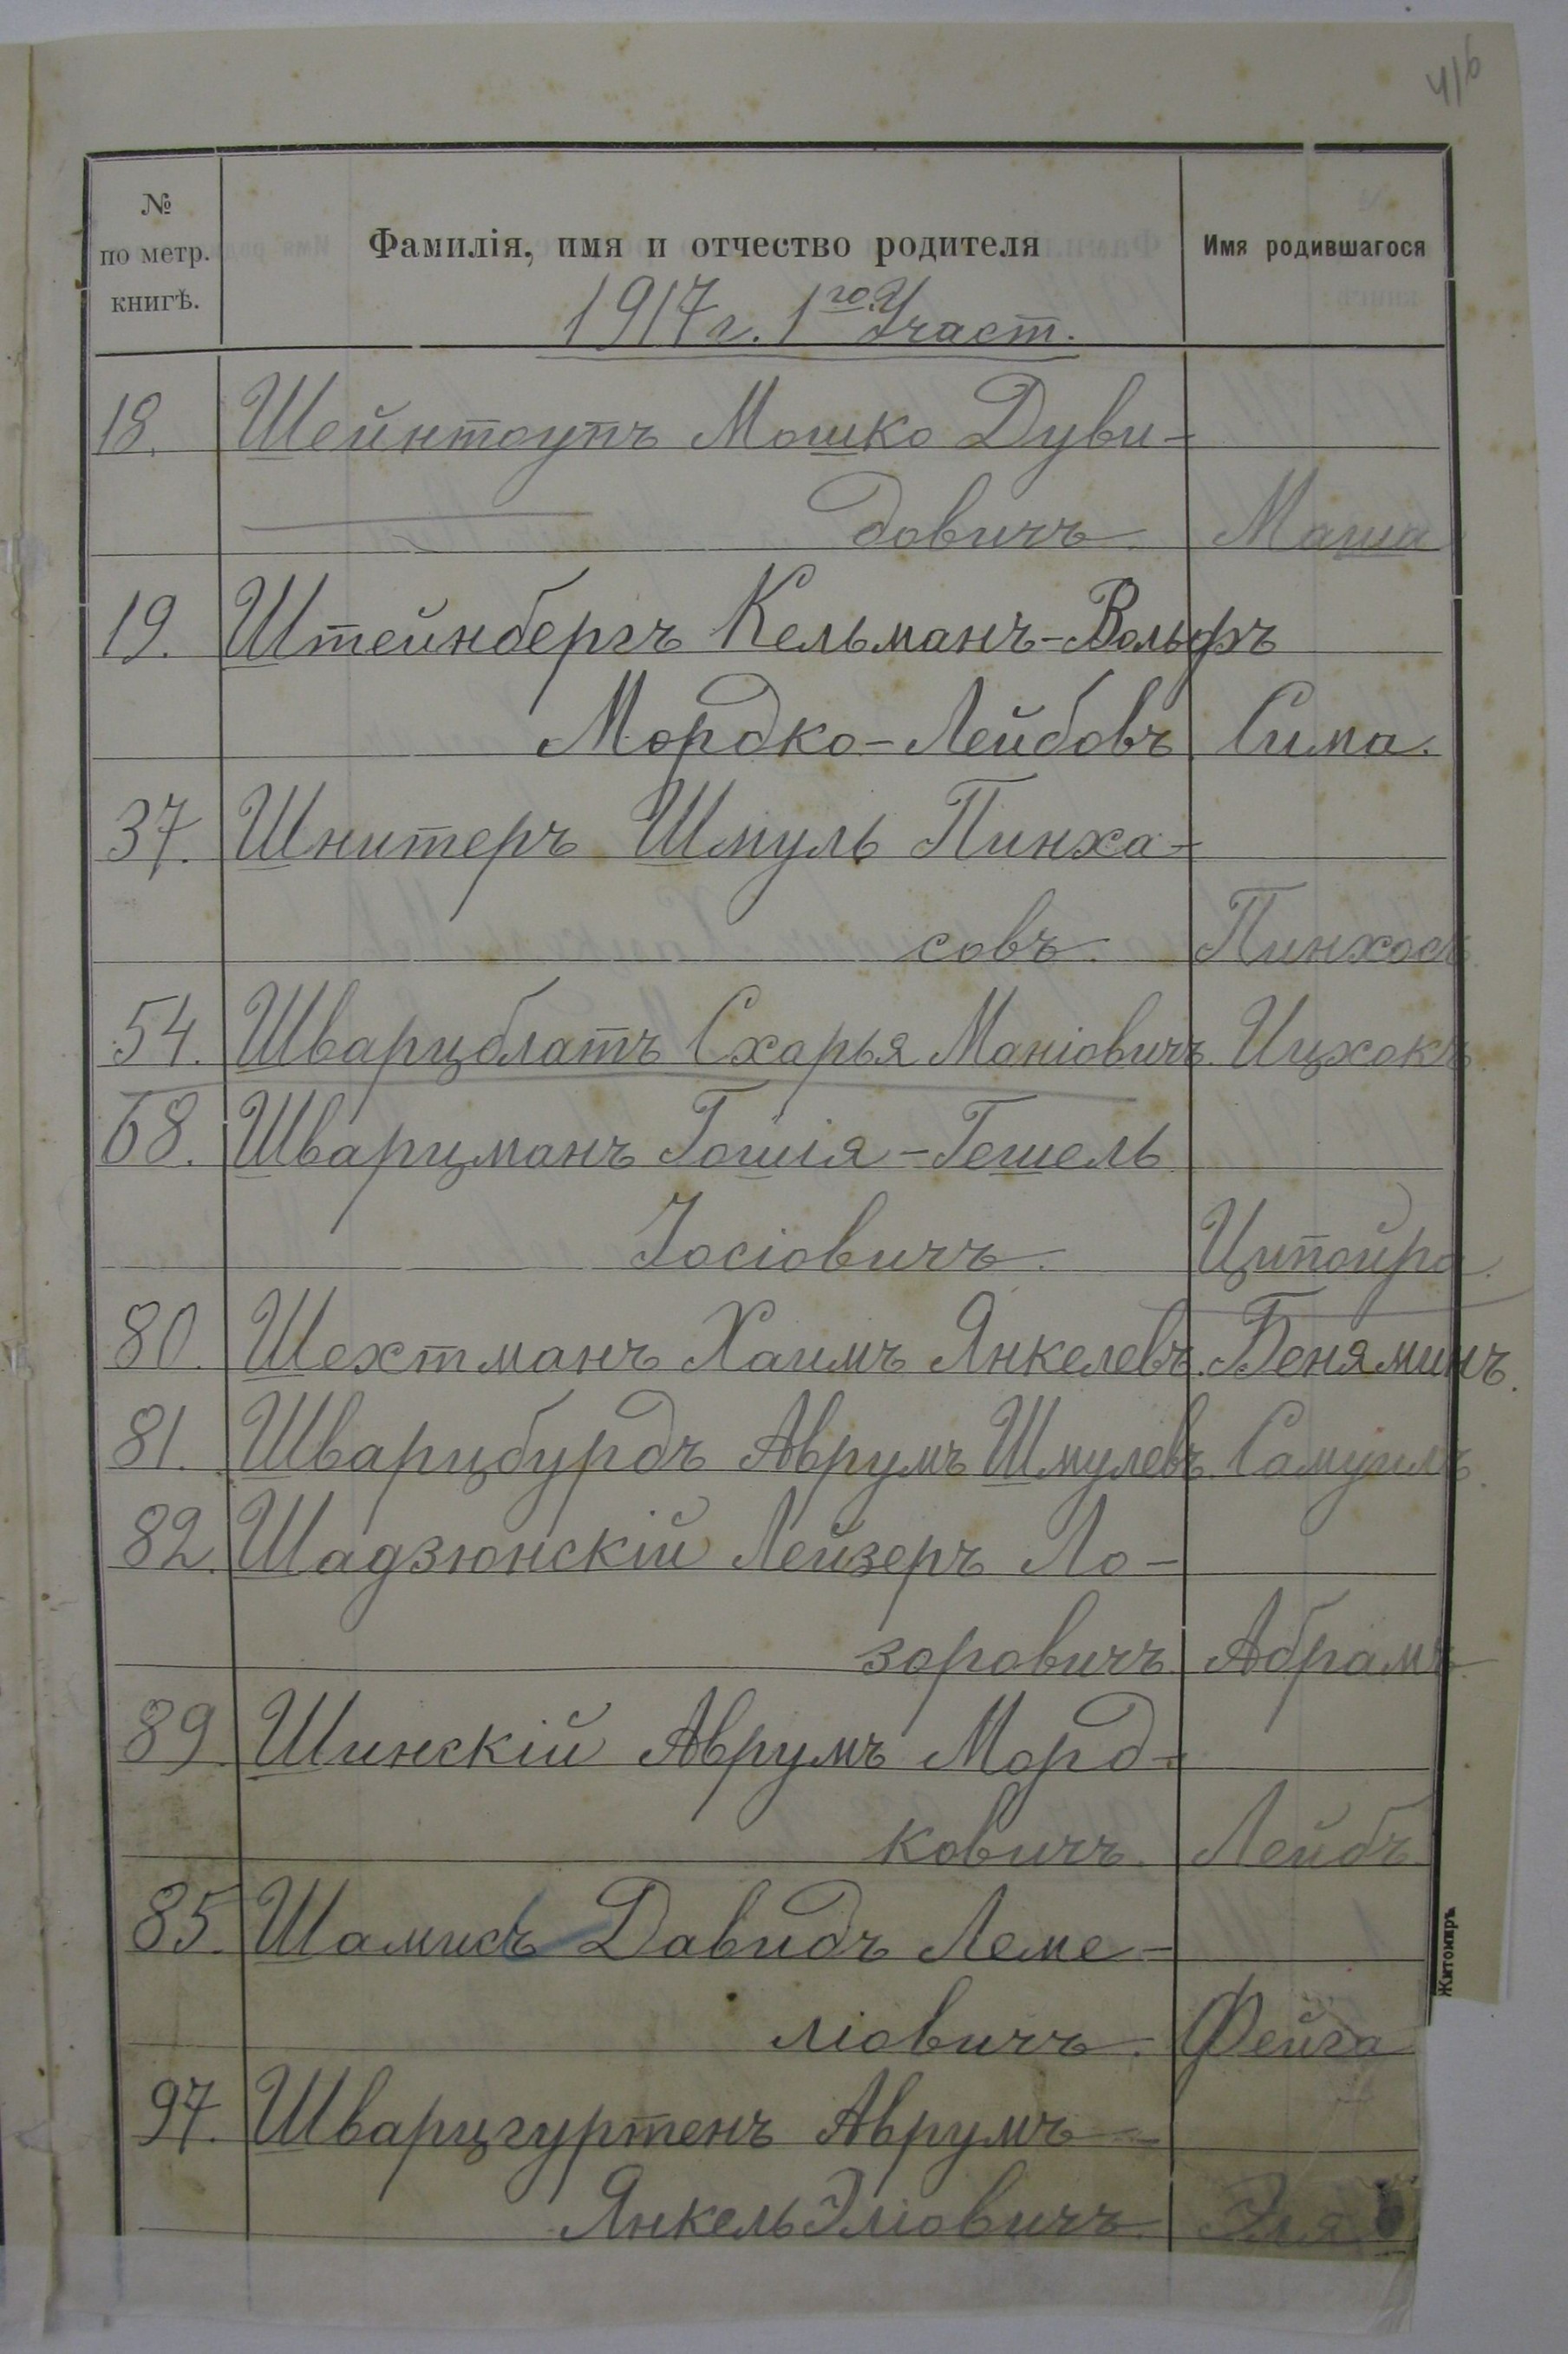 416
№ по метр. книгѣ.
Фамилія, имя и отчество родителя
Имя родившагося
1917 г. 1го Участ.
18. Шейнтоупъ Мошко Дуви-
довичъ. Маша
19. Штейнбергъ Кельманъ-Вольфъ
Мордко-Лейбовъ. Сима.
37. Шнитеръ Шмуль Пинха-
совъ. Пинхосъ.
54. Шварцблатъ Схарья Моніовичъ. Ицхокъ
68. Шварцманъ Гошія-Гешель
Іосіовичъ. Ципойра.
80. Шехтманъ Хаимъ Янкелевъ. Беняминъ.
81. Шварцбурдъ Аврумъ Шмулевъ. Самуилъ.
82. Шадзюнскій Лейзеръ Ло-
зоровичъ. Абрамъ
89. Шинскій Аврумъ Морд-
ковичъ. Лейбъ
85. Шамисъ Давидъ Леме-
ліовичъ. Фейга
97. Шварцгуртенъ Аврумъ-
Янкель Эліовичъ. Эля
Житомиръ